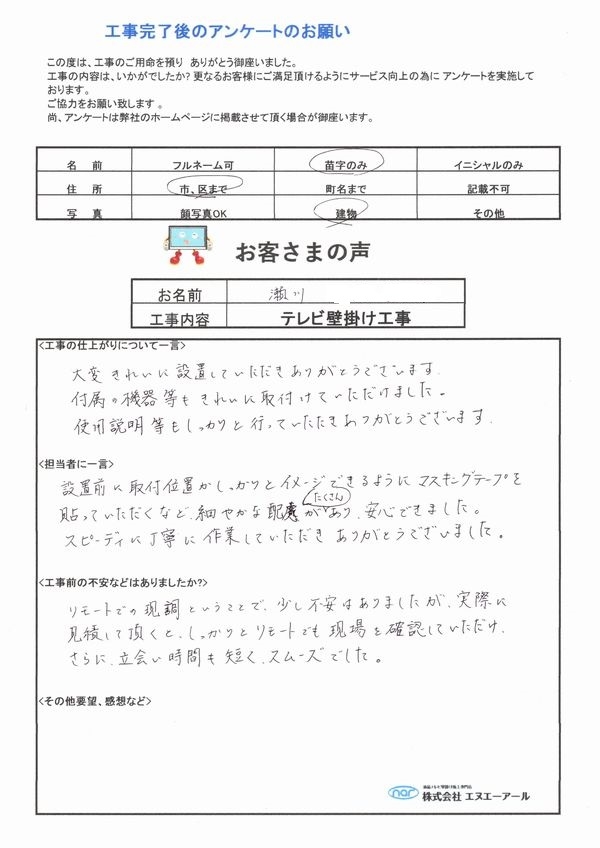 工事完了後のアンケートのお願い
この度は、工事のご用命を預り ありがとう御座いました。
工事の内容は、いかがでしたか? 更なるお客様にご満足頂けるようにサービス向上の為に アンケートを実施して
おります。
ご協力をお願い致します 。
尚、アンケートは弊社のホームページに掲載させて頂く場合が御座います。
名 前 フルネーム可 苗字のみ イニシャルのみ
住 所 市、区まで 町名まで 記載不可
写 真 顔写真OK 建物 その他
お客さまの声
お名前 瀬川
工事内容 テレビ壁掛け工事
<工事の仕上がりについて一言>
大変きれいに設置していただきありがとうございます。
付属の機器等もきれいに取付けていただけました。
使用説明等もしっかりと行っていただきありがとうございます。
<担当者に一言>
設置前に取付位置がしっかりとイメージできるようにマスキングテープを
貼っていただくなど、細やかな配慮がたくさんあり、安心できました。
スピーディに丁寧に作業していただきありがとうございました。
<工事前の不安などはありましたか?>
リモートでの現調ということで、少し不安はありましたが、実際に
見積して頂くと、しっかりとリモートでも現場を確認していただけ、
さらに、立会い時間も短く、スムーズでした。
<その他要望、感想など>
nar
株式会社 エヌエーアール